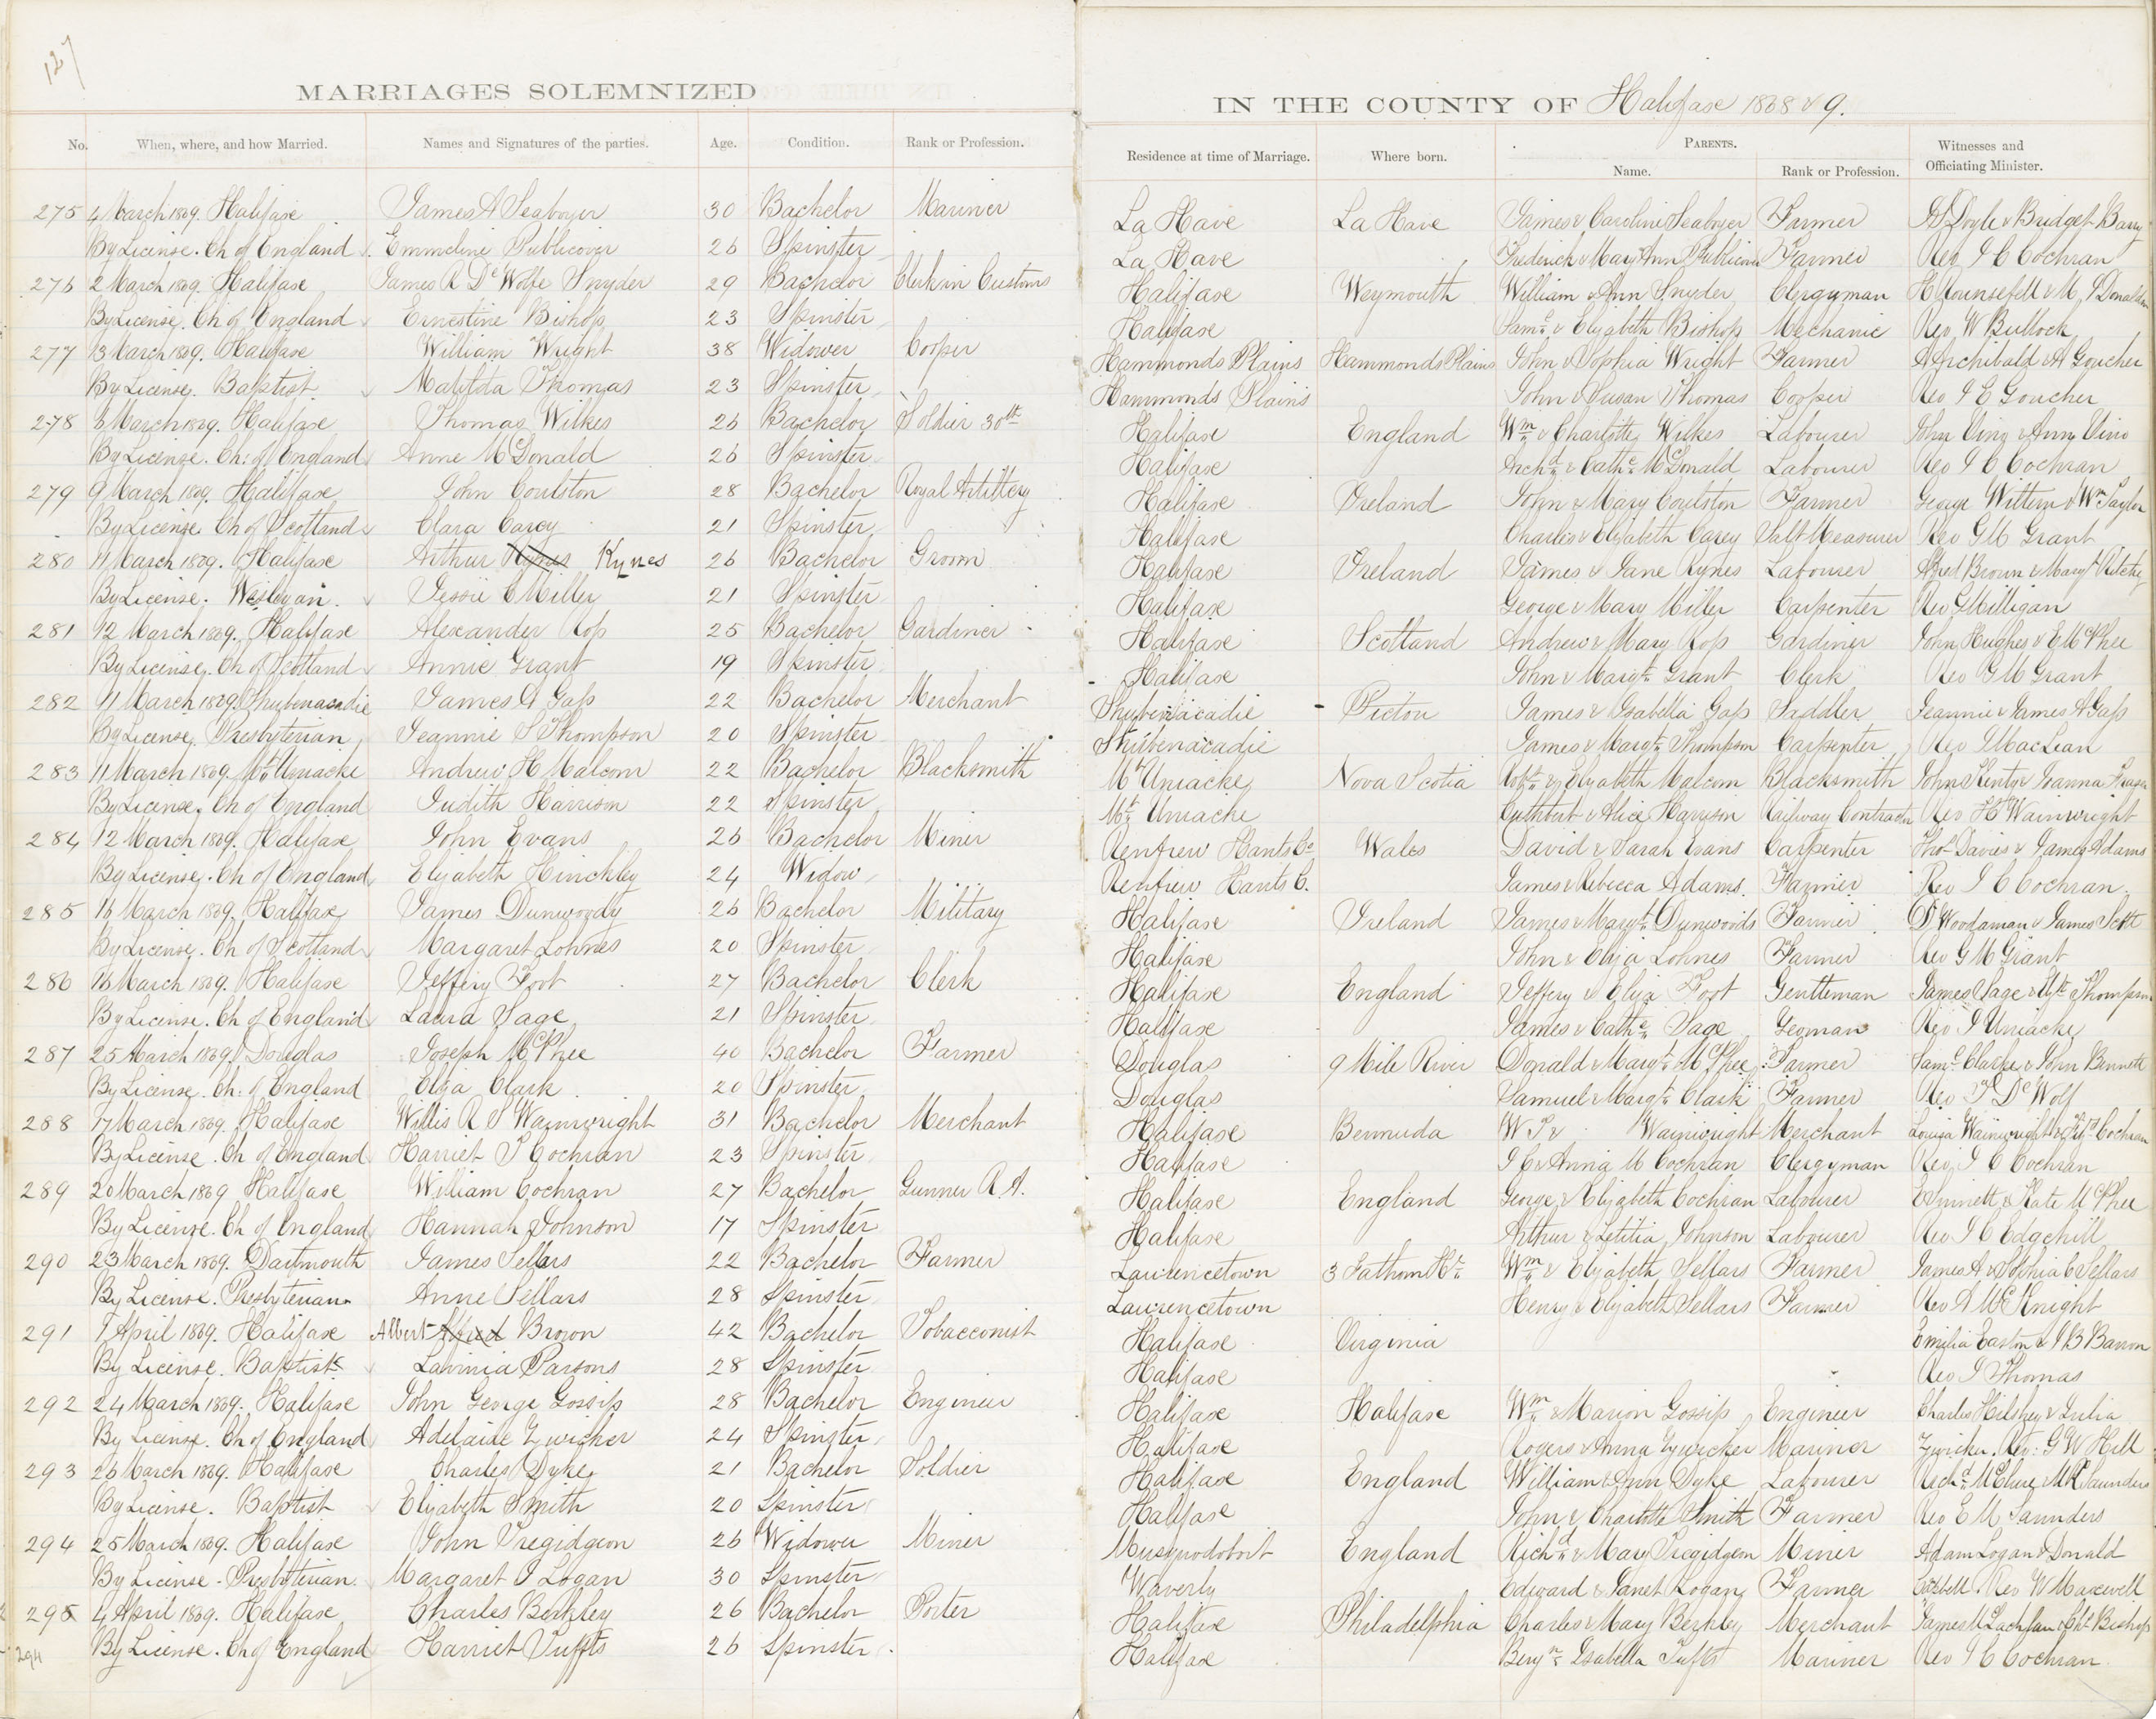 127
MARRIAGES SOLEMNIZED
IN THE COUNTY OF Halifax 1868 & 9.
No. When, where, and how Married. Names and Signatures of the parties. Age. Condition. Rank or Profession. Residence at time of Marriage. Where born. PARENTS. Name. Rank or Profession. Witnesses and Officiating Minister.
275 4 March 1869. Halifax James A Seaboyer 30 Bachelor Mariner La Have La Have James & Caroline Seaboyer Farmer Doyle & Bridget Barry
By License. Ch of England Emmeline Publicover 26 Spinster La Have Frederick & Mary Ann Publicover Farmer Rev J C Cochran
276 2 March 1869. Halifax James R De Wolfe Snyder 29 Bachelor Clerk in Customs Halifax Weymouth William & Ann Snyder Clergyman H Hounsefell & M J Donaldson
By License. Ch of England Ernestine Bishop 23 Spinster Halifax Saml. & Elizabeth Bishop Mechanic Rev W Bullock
277 3 March 1869. Halifax William Wright 38 Widower Cooper Hammonds Plains Hammonds Plains John & Sophia Wright Farmer A Archibald & A Goucher
By License. Baptist Matilda Thomas 23 Spinster Hammonds Plains John & Susan Thomas Cooper Rev J E Goucher
278 8 March 1869. Halifax Thomas Wilkes 26 Bachelor Soldier 30th Halifax England Wm & Charlotte Wilkes Labourer John Ving & Ann Vino
By License. Ch: of England Anne McDonald 26 Spinster Halifax Archd. & Cathe. McDonald Labourer Rev J C Cochran
279 9 March 1869. Halifax John Coulston 28 Bachelor Royal Artillery Halifax Ireland John & Mary Coulston Farmer George Wittern & Wm Taylor
By License. Ch of Scotland Clara Carey 21 Spinster Halifax Charles & Elizabeth Carey Salt Measurer Rev G M Grant
280 11 March 1869. Halifax Arthur Kynes 26 Bachelor Groom Halifax Ireland James & Jane Kynes Labourer Alfred Brown & Mary A Ritchey
By License. Wesleyan. Jessie C Miller 21 Spinster Halifax George & Mary Miller Carpenter Rev G Milligan
281 12 March 1869. Halifax Alexander Ross 25 Bachelor Gardiner Halifax Scotland Andrew & Mary Ross Gardiner John Hughes & E McPhee
By License. Ch of Scotland Annie Grant 19 Spinster Halifax John & Margt. Grant Clerk Rev G M Grant
282 11 March 1869. Shubenacadie James A Gass 22 Bachelor Merchant Shubenacadie Pictou James & Isabella Gass Saddler Jeannie & James A Gass
By License. Presbyterian Jeannie S Thompson 20 Spinster Shubenacadie James & Margt. Thompson Carpenter Rev J MacLean
283 11 March 1869. Mt Uniacke Andrew H Malcom 22 Bachelor Blacksmith Mt Uniacke Nova Scotia Robt. & Elizabeth Malcom Blacksmith John Kenty & Joanna Fraser
By License. Ch of England Judith Harrison 22 Spinster Mt. Uniacke Cuthbert & Alice Harrison Railway Contractor Rev H Wainwright
284 12 March 1869. Halifax John Evans 26 Bachelor Miner Renfrew Hants Co Wales David & Sarah Evans Carpenter Thos Davies & James Adams
By License. Ch of England Elizabeth Hinckley 24 Widow Renfrew Hants C. James & Rebecca Adams. Farmer Rev J C Cochran.
285 16 March 1869. Halifax James Dunwoody 26 Bachelor Military Halifax Ireland James & Margt. Dunwoods Farmer D Woodaman & James Scott
By License. Ch of Scotland Margaret Lohnes 20 Spinster Halifax John & Eliza Lohnes Farmer Rev G M Grant
286 16 March 1869. Halifax Jeffery Foot 27 Bachelor Clerk Halifax England Jeffery & Eliza Foot Gentleman James Sage & Thompson
By License. Ch of England Laura Sage 21 Spinster Halifax James & Cathe. Sage Yeoman Rev J Uniacke
287 25 March 1869. Douglas Joseph McPhee 40 Bachelor Farmer Douglas 9 Mile River Donald & Margt. McPhee Farmer Saml. Clarke & John Bennett
By License. Ch. of England Eliza Clark 20 Spinster Douglas Samuel & Margt. Clark Farmer Rev De Wolf
288 17 March 1869. Halifax Willis R S Wainwright 31 Bachelor Merchant Halifax Bermuda W P & Wainwright Merchant Louisa Wainwright & Cochran
By License. Ch of England Harriet P Cochran 23 Spinster Halifax J C & Anna M Cochran Clergyman Rev J C Cochran
289 20 March 1869. Halifax William Cochran 27 Bachelor Gunner R A. Halifax England George & Elizabeth Cochran Labourer E Sinnett & Kate McPhee
By License. Ch of England Hannah Johnson 17 Spinster Halifax Arthur & Letitia Johnson Labourer Rev J C Edgehill
290 23 March 1869. Dartmouth James Sellars 22 Bachelor Farmer Lawrencetown 3 Fathom Hr. Wm & Elizabeth Sellars Farmer James A & Sophia C Sellars
By License. Presbyterian Anne Sellars 28 Spinster Lawrencetown Henry & Elizabeth Sellars Farmer Rev A McKnight
291 1 April 1869. Halifax Albert Alfred Brown 42 Bachelor Tobacconist Halifax Virginia Emilia Easton & J B Barron
By License. Baptist Lavinia Parsons 28 Spinster Halifax Rev J Thomas
292 24 March 1869. Halifax John George Gossip 28 Bachelor Engineer Halifax Halifax Wm & Marion Gossip Engineer Charles Hilshey & Julia
By License. Ch of England Adelaide Zwicker 24 Spinster Halifax Rogers & Anna Zywicker Mariner Zwicker. Rev: G W Hill
293 26 March 1869. Halifax Charles Dyke 21 Bachelor Soldier Halifax England William & Ann Dyke Labourer Richd. McClure & M K Saunders
By License. Baptist Elizabeth Smith 20 Spinster Halifax John & Charlotte Smith Farmer Rev E M Saunders
294 25 March 1869. Halifax John Tregidgeon 26 Widower Miner Musquodoboit England Richd. & Mary Tregidgeon Miner Adam Logan & Donald
By License - Presbyterian. Margaret J Logan 30 Spinster Waverly Edward & Janet Logan Farmer Cambell. Rev W Maxwell
295 4 April 1869. Halifax Charles Berkley 26 Bachelor Porter Halifax Philadelphia Charles & Mary Berkley Merchant James McLachlan & Bishop
294 By License. Ch of England Harriet Tuffts 26 Spinster Halifax Benjn. Isabella Tufts Mariner Rev J C Cochran.